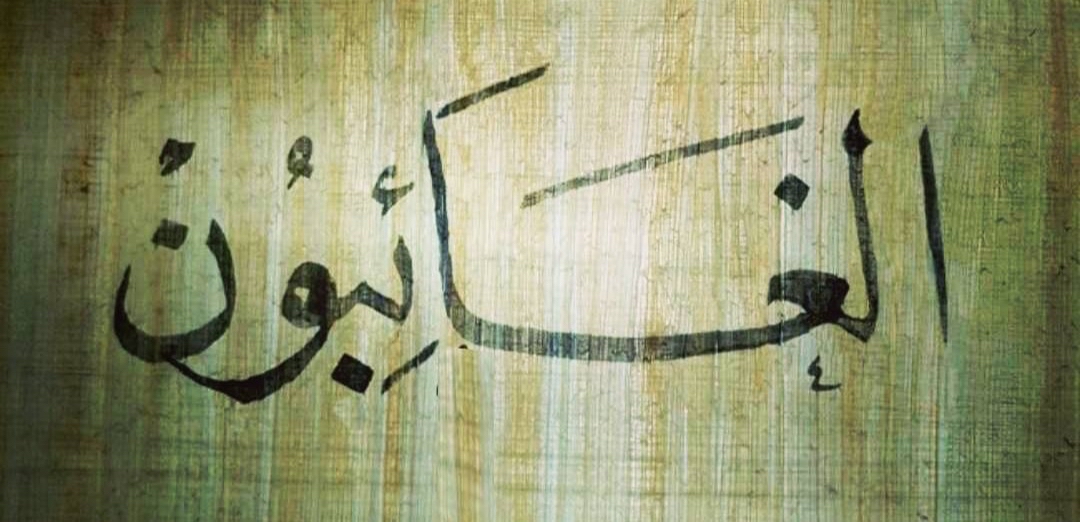 الغَائِبُونْ